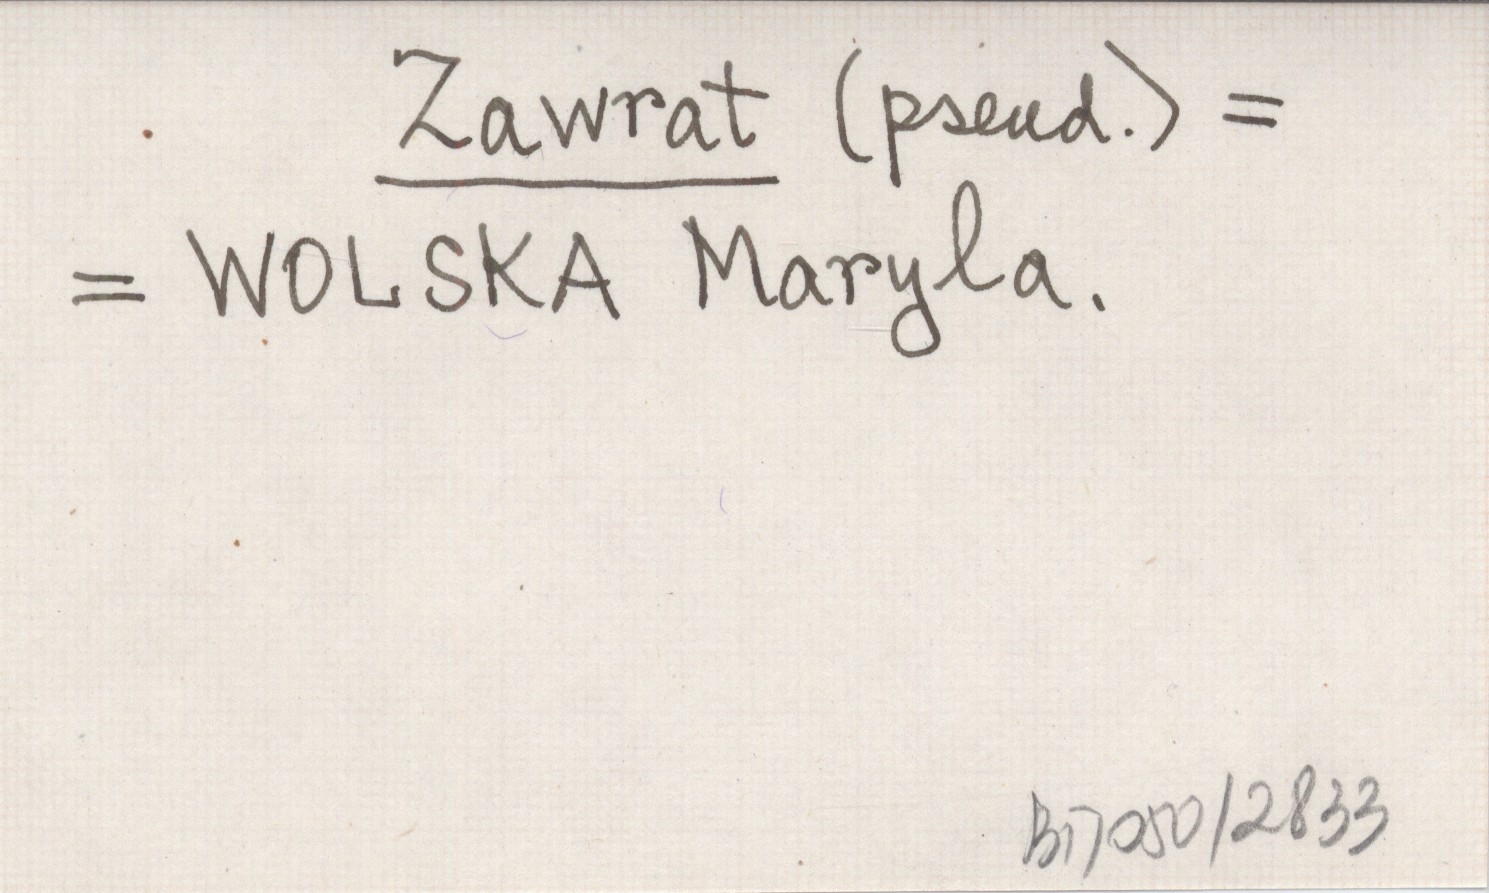 Zawrat (pseud.) =
= WOLSKA Maryla.
B17050/2833